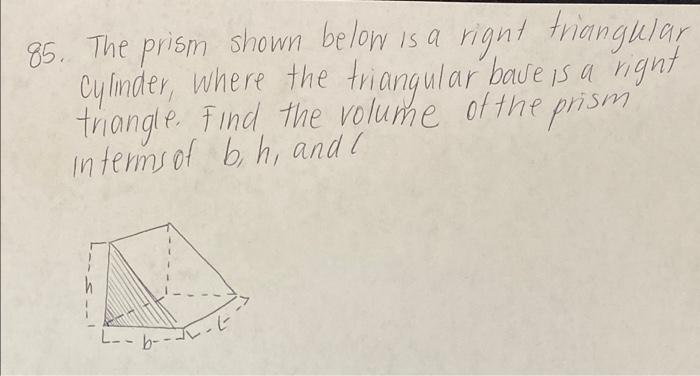 85. The prism shown below is a right triangular
cylinder, where the triangular base is a right
triangle. Find the volume of the prism
in terms of b, h, and l
h
b
l